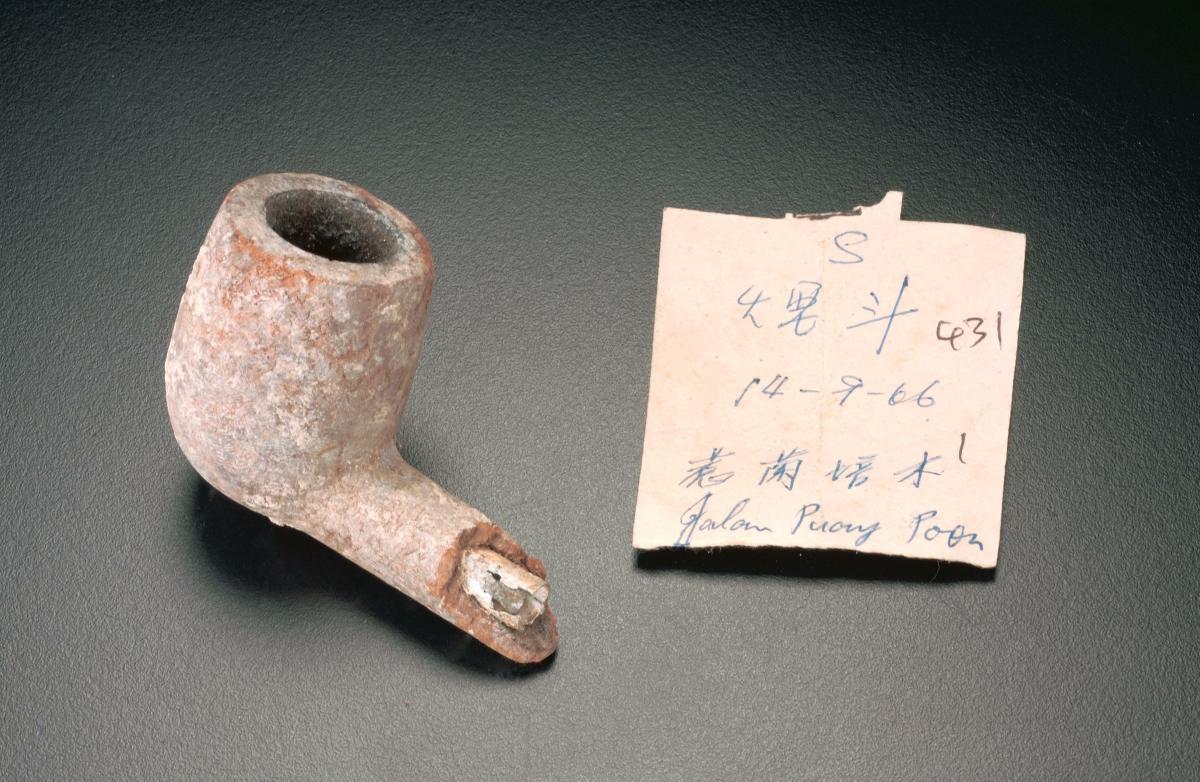 S
斗 431
14-9-66
惹蘭培本 1
Jalan Puay Poon